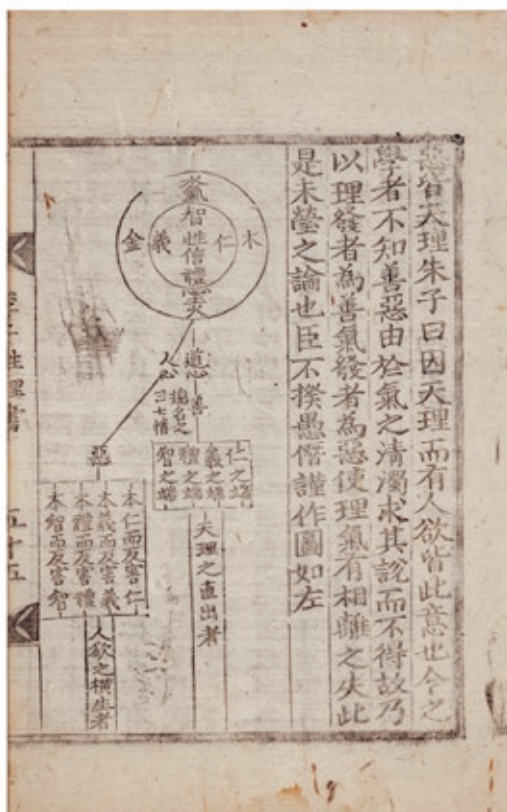 惡皆天理朱子曰因天理而有人欲皆此意也今之
學者不知善惡由於氣之淸濁求其說而不得故乃
以理發者爲善氣發者爲惡使理氣有相離之失此
是未瑩之論也臣不揆愚僭謹作圖如左
水
氣
智
木
仁
性
信
義
金
禮
心
火
道心
善
人心
摠名之
曰七情
仁之端
義之端
禮之端
智之端
天理之直出者
惡
本仁而反害仁
本義而反害義
本禮而反害禮
本智而反害智
人欲之橫生者
性理書
五十五